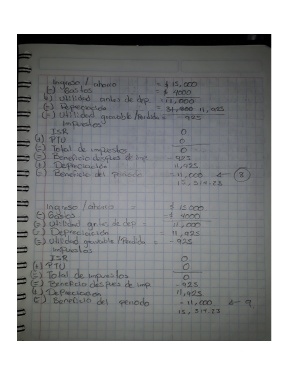 Ingreso / ahorro = $ 15,000
(-) Gastos = $ 4000
(=) Utilidad antes de dep. = 11,000
(-) Depreciación = 11,925
(=) Utilidad gravable / Perdida = - 925
Impuestos
ISR 0
(+) PTU 0
(=) Total de impuestos 0
(=) Beneficio despues de imp. - 925
(+) Depreciación 11,925
(=) Beneficio del periodo 11,000 ←
Ingreso / ahorro = $ 15,000
(-) Gastos = $ 4000
(=) Utilidad antes de dep = 11,000
(-) Depreciación = 11,925
(=) Utilidad gravable / Perdida = - 925
Impuestos
ISR 0
(+) PTU 0
(=) Total de impuestos 0
(=) Beneficio despues de imp - 925
(+) Depreciacion 11,925
(=) Beneficio del periodo - 11,000 ← 9